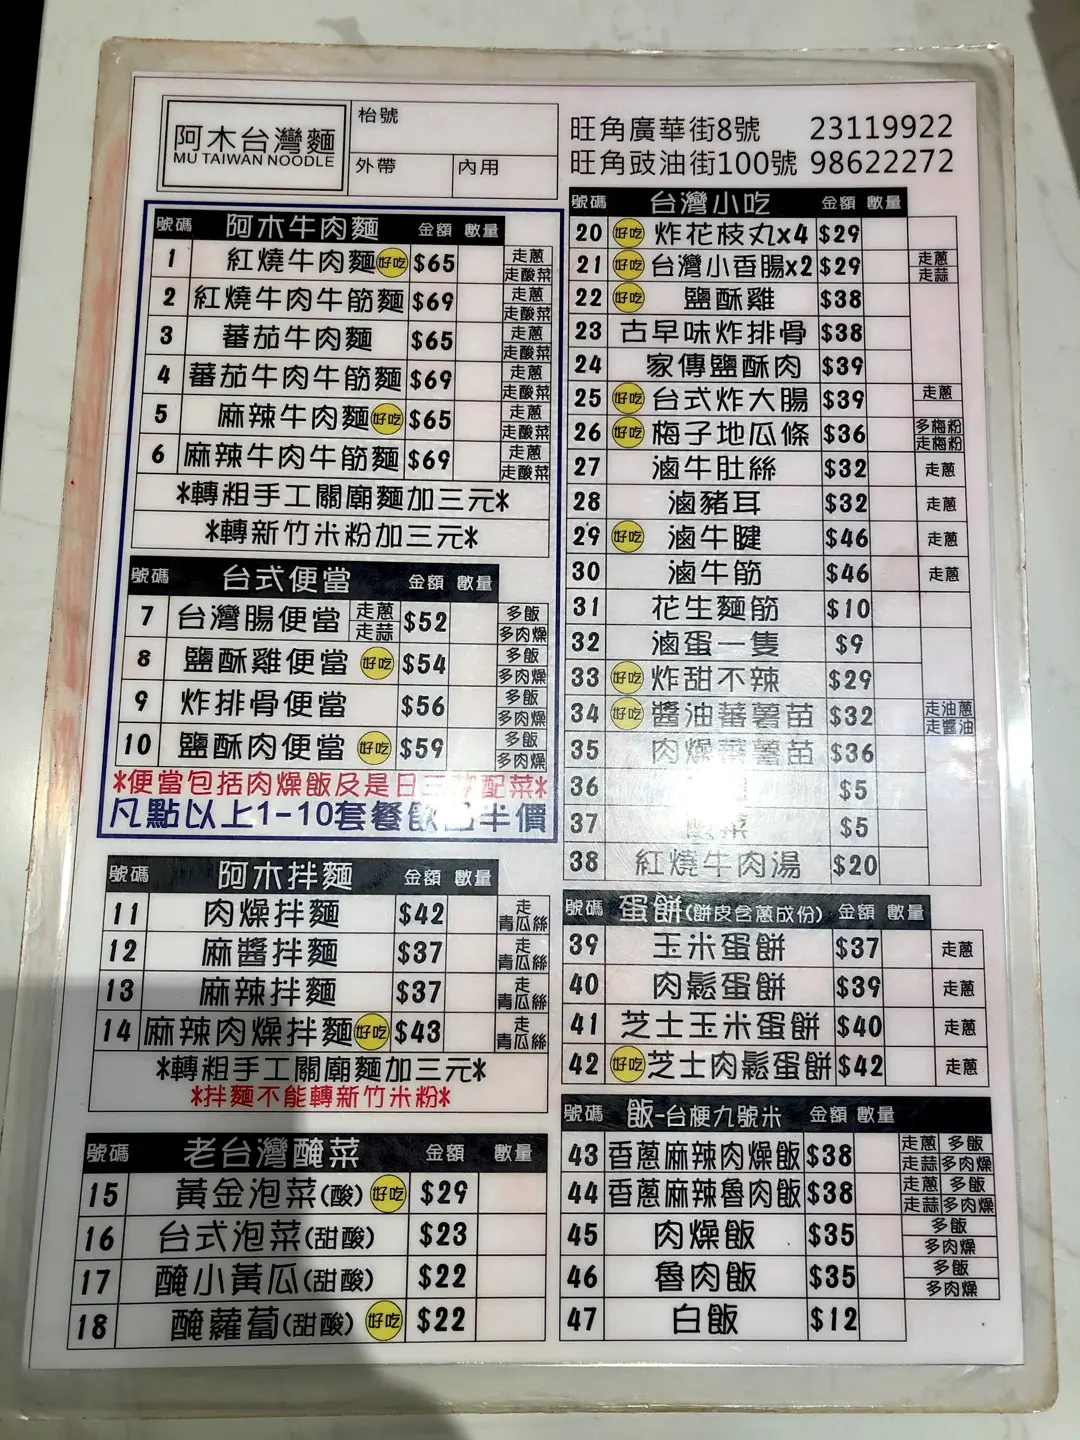 阿木台灣麵
MU TAIWAN NOODLE
枱號
外帶 內用
旺角廣華街8號 23119922
旺角豉油街100號 98622272
號碼 阿木牛肉麵 金額 數量
1 紅燒牛肉麵 好吃 $65 走蔥 走酸菜
2 紅燒牛肉牛筋麵 $69 走蔥 走酸菜
3 蕃茄牛肉麵 $65 走蔥 走酸菜
4 蕃茄牛肉牛筋麵 $69 走蔥 走酸菜
5 麻辣牛肉麵 好吃 $65 走蔥 走酸菜
6 麻辣牛肉牛筋麵 $69 走蔥 走酸菜
*轉粗手工關廟麵加三元*
*轉新竹米粉加三元*
號碼 台式便當 金額 數量
7 台灣腸便當 走蔥 走蒜 $52 多飯 多肉燥
8 鹽酥雞便當 好吃 $54 多飯 多肉燥
9 炸排骨便當 $56 多飯 多肉燥
10 鹽酥肉便當 好吃 $59 多飯 多肉燥
*便當包括肉燥飯及是日三 配菜*
凡點以上1-10套餐飲品半價
號碼 阿木拌麵 金額 數量
11 肉燥拌麵 $42 走青瓜絲
12 麻醬拌麵 $37 走青瓜絲
13 麻辣拌麵 $37 走青瓜絲
14 麻辣肉燥拌麵 好吃 $43 走青瓜絲
*轉粗手工關廟麵加三元*
*拌麵不能轉新竹米粉*
號碼 老台灣醃菜 金額 數量
15 黃金泡菜(酸) 好吃 $29
16 台式泡菜(甜酸) $23
17 醃小黃瓜(甜酸) $22
18 醃蘿蔔(甜酸) 好吃 $22
號碼 台灣小吃 金額 數量
20 好吃 炸花枝丸x4 $29
21 好吃 台灣小香腸x2 $29 走蔥 走蒜
22 好吃 鹽酥雞 $38
23 古早味炸排骨 $38
24 家傳鹽酥肉 $39
25 好吃 台式炸大腸 $39 走蔥
26 好吃 梅子地瓜條 $36 多梅粉 走梅粉
27 滷牛肚絲 $32 走蔥
28 滷豬耳 $32 走蔥
29 好吃 滷牛腱 $46 走蔥
30 滷牛筋 $46 走蔥
31 花生麵筋 $10
32 滷蛋一隻 $9
33 好吃 炸甜不辣 $29
34 好吃 醬油蕃薯苗 $32 走油蔥 走醬油
35 肉燥蕃薯苗 $36
36 $5
37 酸菜 $5
38 紅燒牛肉湯 $20
號碼 蛋餅(餅皮含蔥成份) 金額 數量
39 玉米蛋餅 $37 走蔥
40 肉鬆蛋餅 $39 走蔥
41 芝士玉米蛋餅 $40 走蔥
42 好吃 芝士肉鬆蛋餅 $42 走蔥
號碼 飯-台梗九號米 金額 數量
43 香蔥麻辣肉燥飯 $38 走蔥 多飯 走蒜 多肉燥
44 香蔥麻辣魯肉飯 $38 走蔥 多飯 走蒜 多肉燥
45 肉燥飯 $35 多飯 多肉燥
46 魯肉飯 $35 多飯 多肉燥
47 白飯 $12